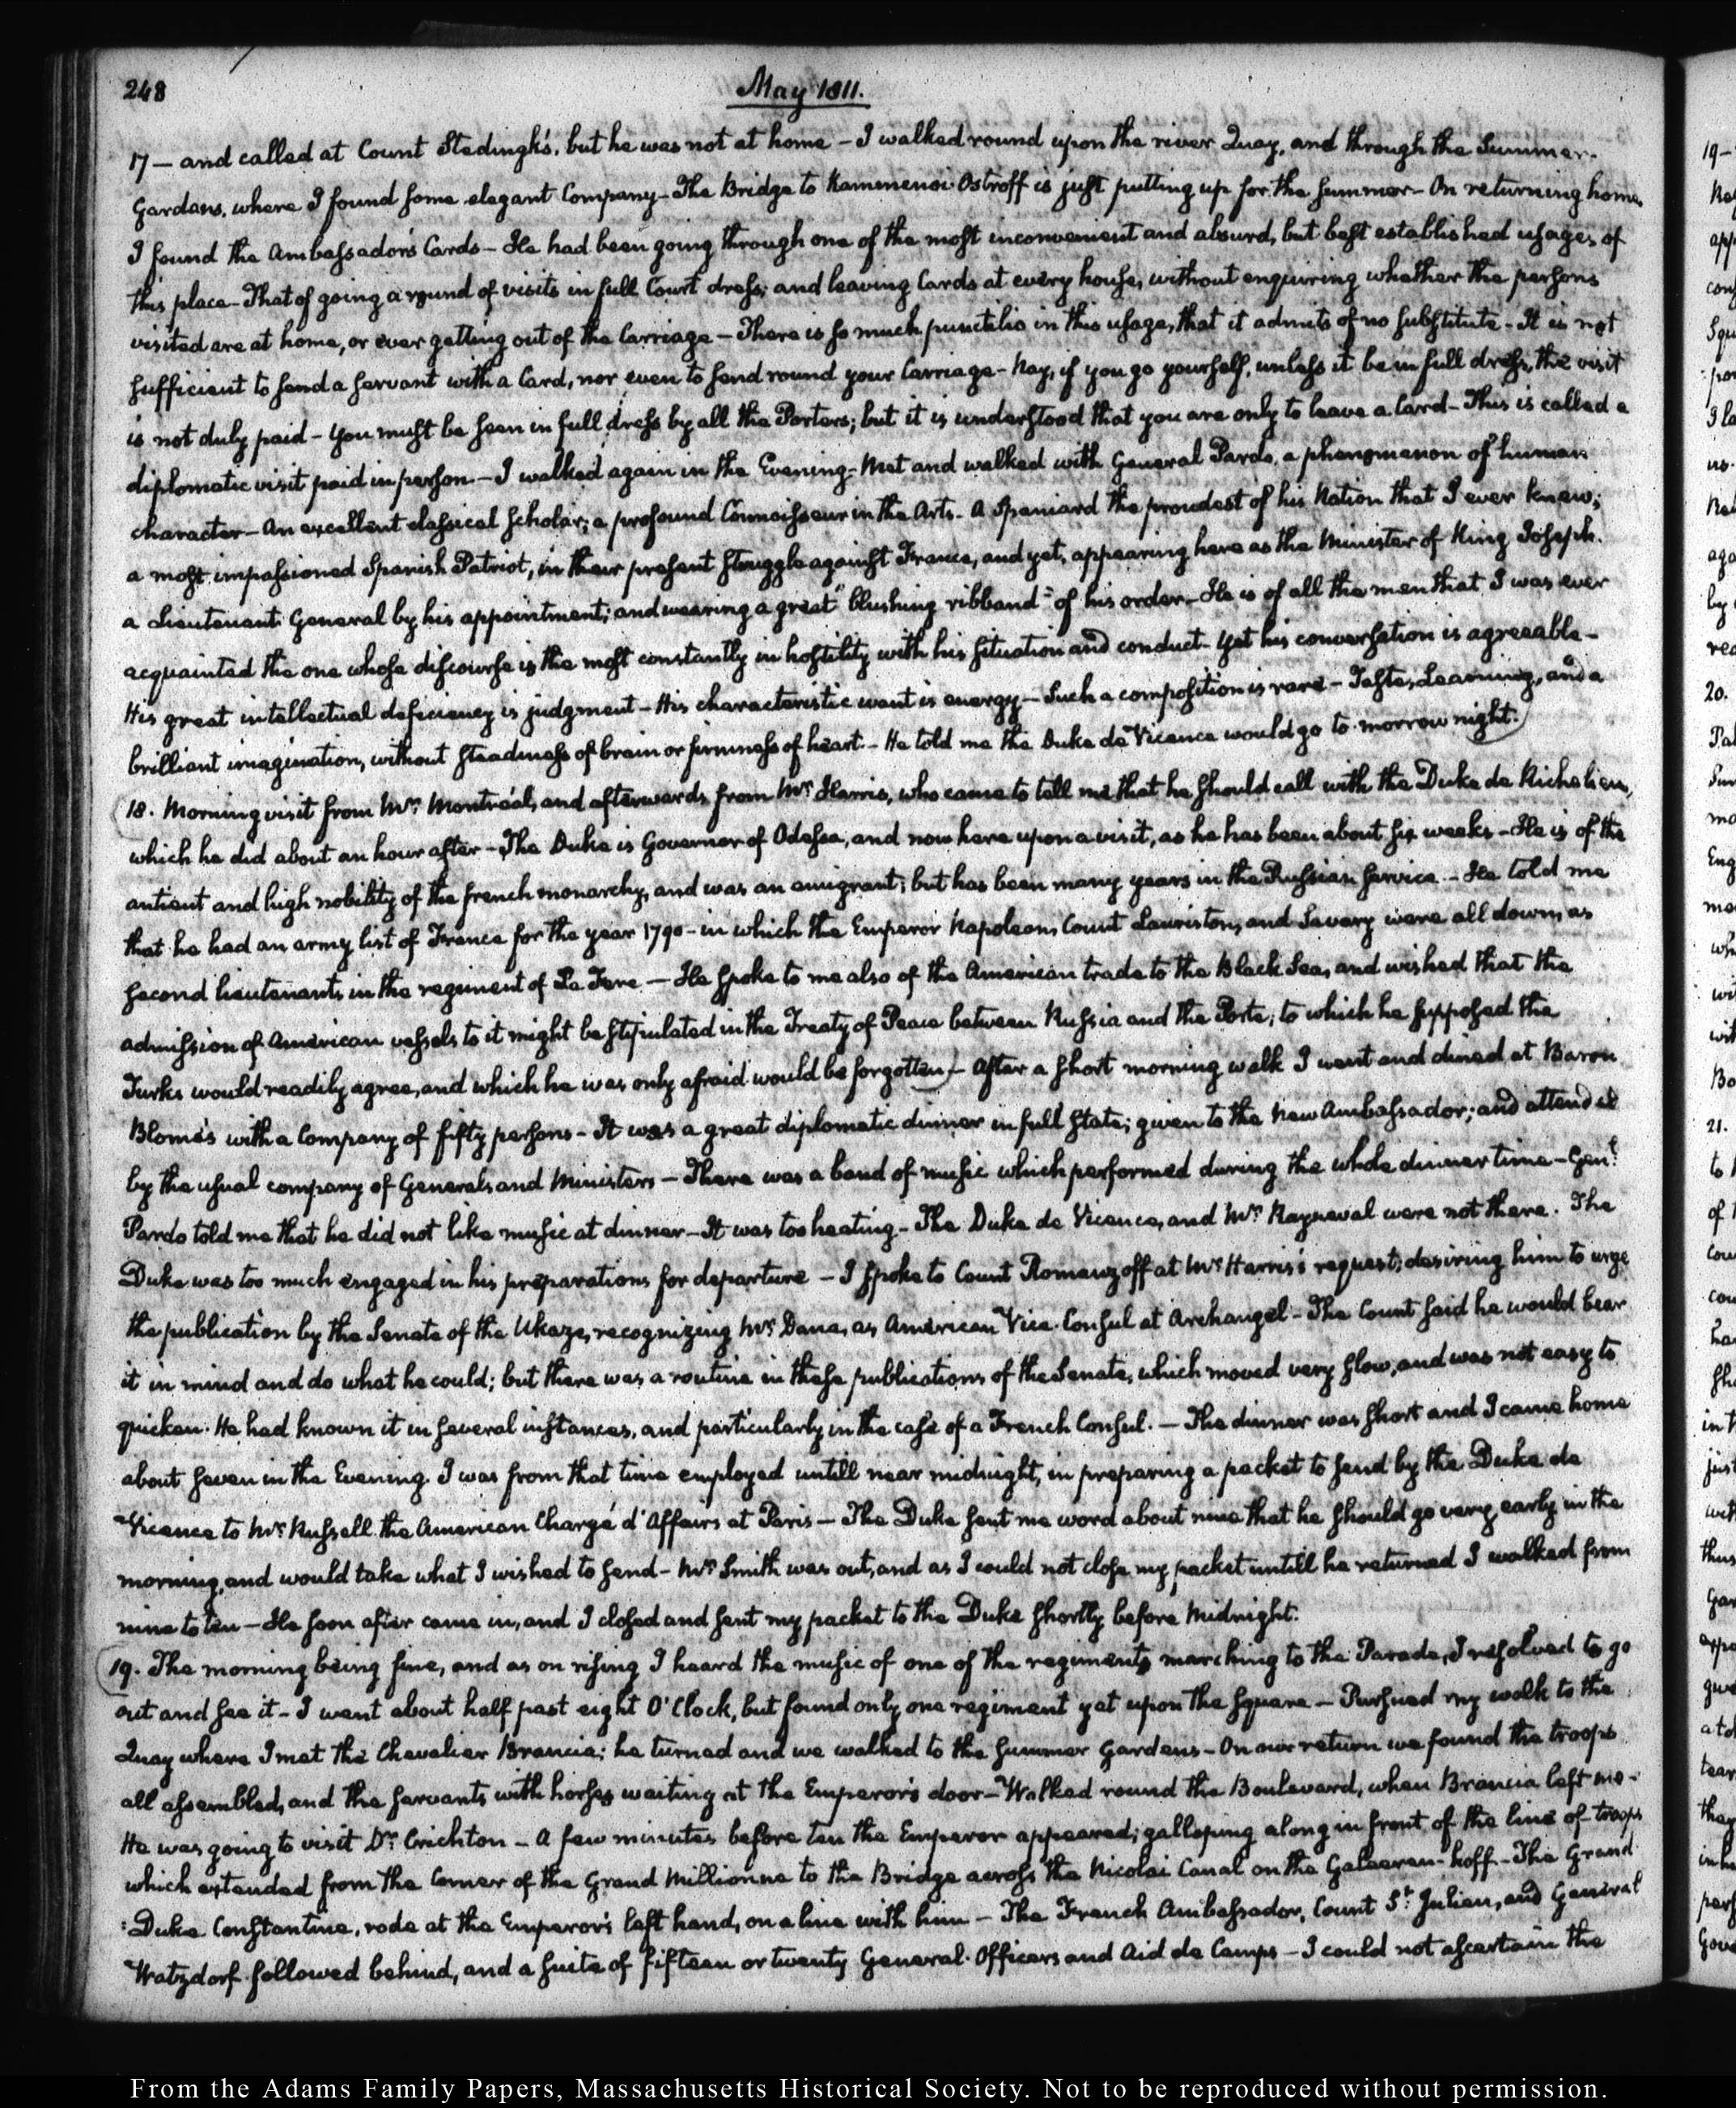 248
May 1811.
17 — and called at Count Stedingk's, but he was not at home — I walked round upon the river Quay, and through the Summer-
Gardens, where I found some elegant Company — The Bridge to Kammenoi-Ostroff is just putting up for the summer — On returning home,
I found the Ambassador's Cards — He had been going through one of the most inconvenient and absurd, but best established usages of
this place — That of going a round of visits in full Court dress; and leaving Cards at every house, without enquiring whether the persons
visited are at home, or ever getting out of the Carriage — There is so much punctilio in this usage, that it admits of no substitute — It is not
sufficient to send a servant with a Card, nor even to send round your Carriage — Nay, if you go yourself, unless it be in full dress, the visit
is not duly paid — You must be seen in full dress by all the Porters; but it is understood that you are only to leave a Card — This is called a
diplomatic visit paid in person — I walked again in the Evening — Met and walked with General Pardo, a phenomenon of human
character — An excellent classical scholar; a profound Connoisseur in the Arts — A Spaniard the proudest of his Nation that I ever knew;
a most impassioned Spanish Patriot, in their present struggle against France, and yet, appearing here as the Minister of King Joseph.
a Lieutenant General by his appointment; and wearing a great "blushing ribband" of his order — He is of all the men that I was ever
acquainted the one whose discourse is the most constantly in hostility with his situation and conduct — Yet his conversation is agreeable —
His great intellectual deficiency is judgment — His characteristic want is energy — Such a composition is rare — Taste, Learning, and a
brilliant imagination, without steadiness of brain or firmness of heart. — He told me the Duke de Vicence would go to-morrow night.)
(18. Morning visit from Mr. Montréal, and afterwards from Mr. Harris, who came to tell me that he should call with the Duke de Richelieu,
which he did about an hour after — The Duke is Governor of Odessa, and now here upon a visit, as he has been about six weeks — He is of the
antient and high nobility of the french monarchy, and was an emigrant; but has been many years in the Russian service. — He told me
that he had an army list of France for the year 1790 — in which the Emperor Napoleon, Count Lauriston, and Savary were all down, as
second lieutenants in the regiment of La Fere — He spoke to me also of the American trade to the Black Sea, and wished that the
admission of American vessels to it might be stipulated in the Treaty of Peace between Russia and the Porte; to which he supposed the
Turks would readily agree, and which he was only afraid would be forgotten) — After a short morning walk I went and dined at Baron
Blome's with a Company of fifty persons — It was a great diplomatic dinner in full state; given to the New Ambassador; and attended
by the usual company of Generals and Ministers — There was a band of music which performed during the whole dinner time — Genl.
Pardo told me that he did not like music at dinner — It was too heating — The Duke de Vicence, and Mr. Rayneval were not there. The
Duke was too much engaged in his preparations for departure — I spoke to Count Romanzoff at Mr. Harris's request; desiring him to urge
the publication by the Senate of the Ukaze, recognizing Mr. Dana, as American Vice-Consul at Archangel — The Count said he would bear
it in mind and do what he could; but there was a routine in these publications of the Senate, which moved very slow, and was not easy to
quicken. He had known it in several instances, and particularly in the case of a French Consul. — The dinner was short and I came home
about seven in the Evening. I was from that time employed untill near midnight, in preparing a packet to send by the Duke de
Vicence to Mr. Russell the American Chargé d'Affairs at Paris — The Duke sent me word about nine that he should go very early in the
morning, and would take what I wished to send — Mr. Smith was out, and as I could not close my packet untill he returned I walked from
nine to ten — He soon after came in, and I closed and sent my packet to the Duke shortly before Midnight.
(19. The morning being fine, and as on rising I heard the music of one of the regiments marching to the Parade, I resolved to go
out and see it — I went about half past eight O'Clock, but found only one regiment yet upon the square — Pursued my walk to the
Quay where I met the Chevalier Brancia; he turned and we walked to the Summer Gardens — On our return we found the troops
all assembled, and the servants with horses waiting at the Emperor's door — Walked round the Boulevard, when Brancia left me —
He was going to visit Dr. Crichton — A few minutes before ten the Emperor appeared; galloping along in front of the line of troops
which extended from the Corner of the Grand Millionne to the Bridge across the Nicolai Canal on the Galeeren-hoff — The Grand-
:Duke Constantine, rode at the Emperor's left hand, on a line with him — The French Ambassador, Count St. Julien, and General
Watzdorf followed behind, and a suite of fifteen or twenty General-Officers and Aid de Camps — I could not ascertain the
From the Adams Family Papers, Massachusetts Historical Society. Not to be reproduced without permission.